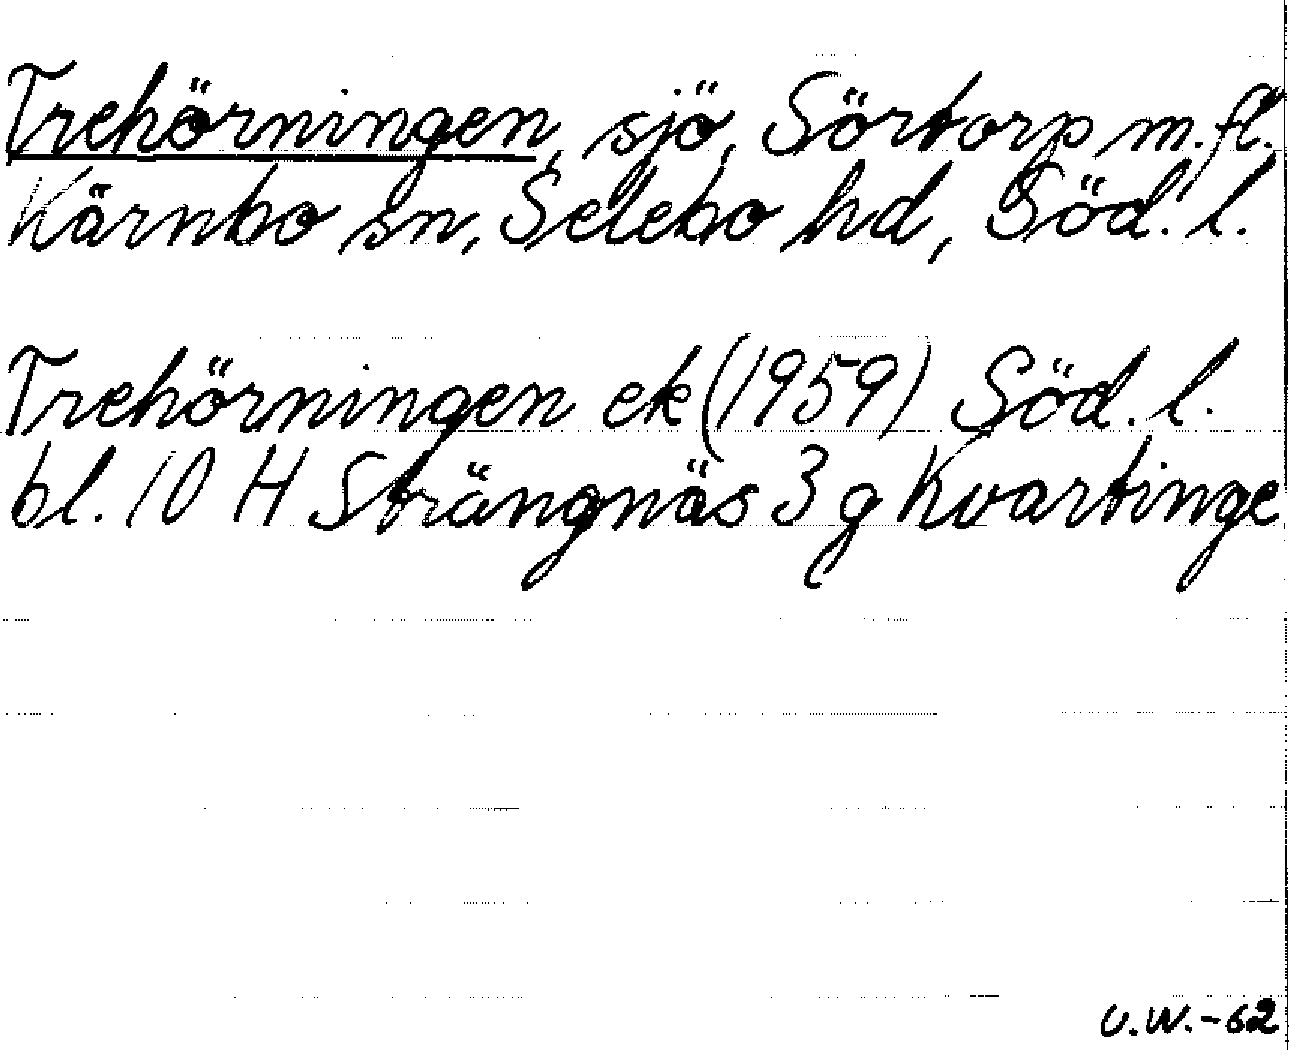 Trehörningen, sjö, Sörtorp m.fl.
Kärnbo sn, Selebo hd, Söd. l.
Trehörningen ek (1959) Söd. l.
bl. 10 H Strängnäs 3 g Kvartinge
U.W.-62